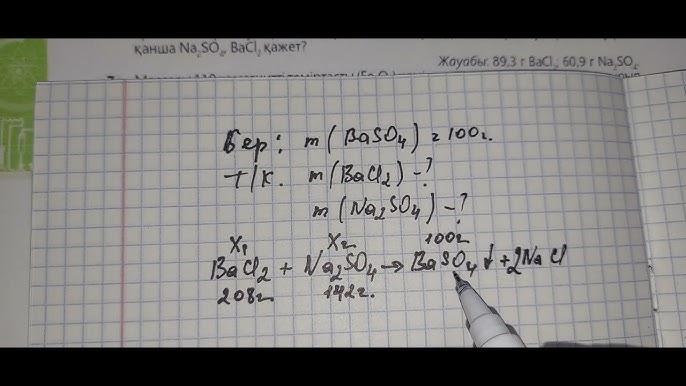 қанша Na₂SO₄, BaCl₂ қажет?
Жауабы: 89,3 г BaCl₂; 60,9 г Na₂SO₄
Бер: m(BaSO₄) = 100г.
Т/к. m(BaCl₂) -?
m(Na₂SO₄) -?
X₁ X₂ 100г
BaCl₂ + Na₂SO₄ → BaSO₄↓ + 2NaCl
208г. 142г.